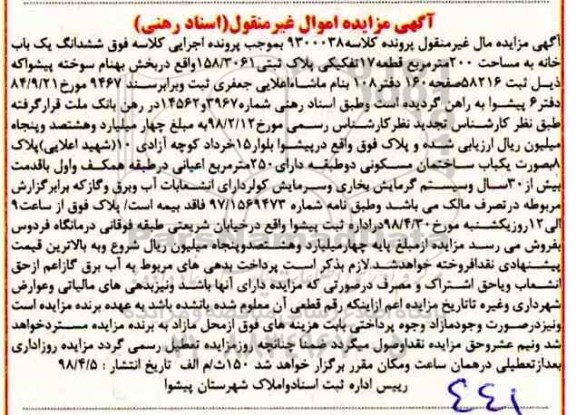 آگهی مزایده اموال غیرمنقول(اسناد رهنی)
آگهی مزایده مال غیرمنقول پرونده کلاسه۹۳۰۰۰۳۸ بموجب پرونده اجرایی کلاسه فوق ششدانگ یک باب
خانه به مساحت ۲۰۰مترمربع قطعه۱۷تفکیکی پلاک ثبتی ۱۵۸/۳۰۶۱واقع دربخش بهنام سوخته پیشواکه
ذیل ثبت ۵۸۲۱۶صفحه۱۶۰دفتر۱۰۸ بنام ماشاءاعلایی جعفری ثبت وبرابرسند ۹۴۶۷ مورخ۸۴/۹/۲۱
دفتر۶ پیشوا به راهن گردیده است وطبق اسناد رهنی شماره۳۹۶۷و۱۴۵۶۲در رهن بانک ملت قرارگرفته
طبق نظر کارشناس تجدید نظرکارشناس رسمی مورخ۹۸/۲/۱۲به مبلغ چهار میلیارد وهشتصد وپنجاه
میلیون ریال ارزیابی شده و پلاک فوق واقع درپیشوا بلوار۱۵خرداد کوچه آزادی ۱۰(شهید اعلایی)پلاک
۸بصورت یکباب ساختمان مسکونی دوطبقه دارای۲۵۰مترمربع اعیانی درطبقه همکف واول باقدمت
بیش از۳۰سال وسیستم گرمایش بخاری وسرمایش کولردارای انشعابات آب وبرق وگازکه برابرگزارش
مربوطه درتصرف مالک می باشد وطبق نامه شماره ۹۷/۱۵۶۹۴۷۳ فاقد بیمه است/ پلاک فوق از ساعت۹
الی۱۲روزیکشنبه مورخ۹۸/۴/۳۰دراداره ثبت پیشوا واقع درخیابان شریعتی طبقه فوقانی درمانگاه فردوس
بفروش می رسد مزایده ازمبلغ پایه چهارمیلیارد وهشتصدوپنجاه میلیون ریال شروع وبه بالاترین قیمت
پیشنهادی نقدافروخته خواهدشد.لازم بذکر است پرداخت بدهی های مربوط به آب برق گازاعم ازحق
انشعاب ویاحق اشتراک و مصرف درصورتی که مزایده دارای آنها باشد ونیزبدهی های مالیاتی وعوارض
شهرداری وغیره تاتاریخ مزایده اعم ازاینکه رقم قطعی آن معلوم شده یانشده باشد به عهده برنده مزایده است
ونیزدرصورت وجودمازاد وجوه پرداختی بابت هزینه های فوق ازمحل مازاد به برنده مزایده مستردخواهد
شد ونیم عشروحق مزایده نقداوصول میگردد ضمنا چنانچه روزمزایده تعطیل رسمی گردد مزایده روزاداری
بعدازتعطیلی درهمان ساعت ومکان مقرر برگزار خواهد شد ۱۵۰ث/م الف تاریخ انتشار : ۹۸/۴/۵
رییس اداره ثبت اسنادواملاک شهرستان پیشوا
۴۴۱